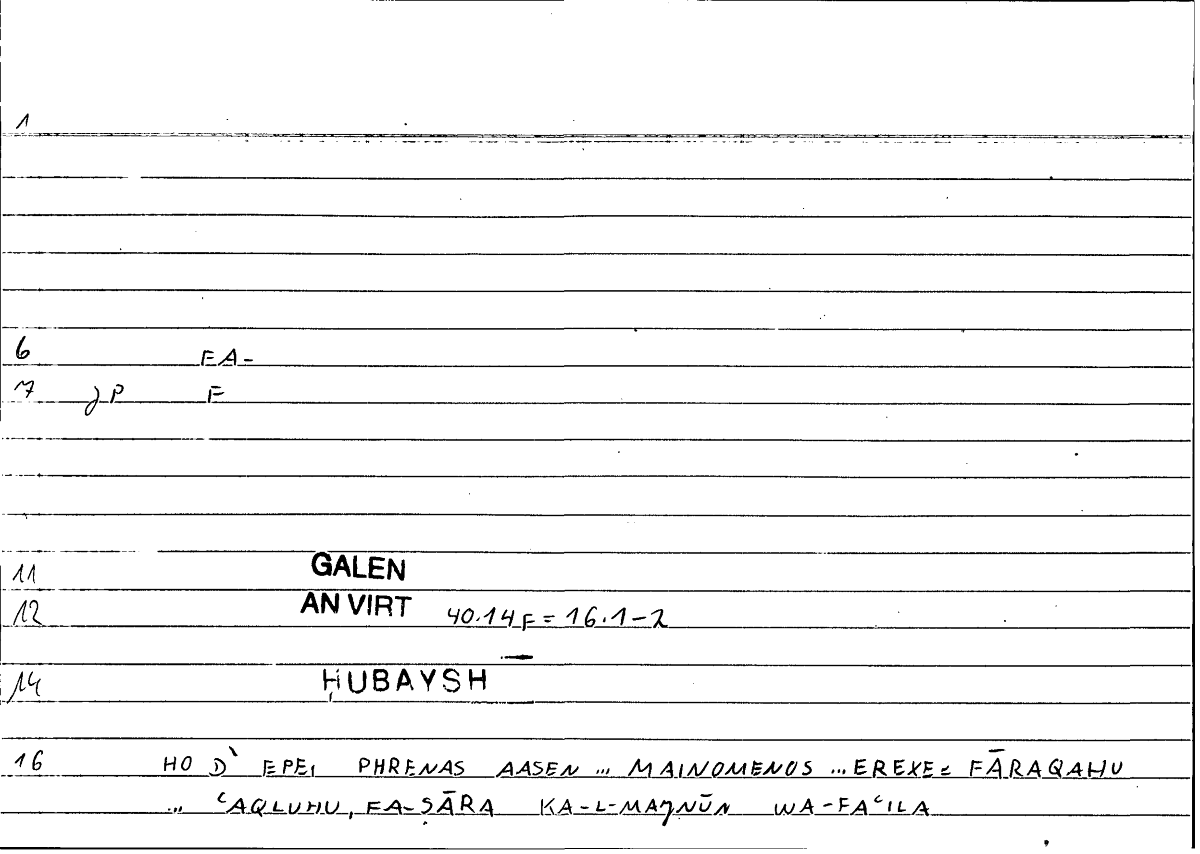 1
6 FA-
7 JP F
11 GALEN
12 AN VIRT 40.14F = 16.1-2
14 ḤUBAYSH
16 HO D` EPEI PHRENAS AASEN ... MAINOMENOS ... EREXE= FĀRAQAHU
... ʿAQLUHU, FA-ṢĀRA KA-L-MAJNŪN WA-FAʿILA